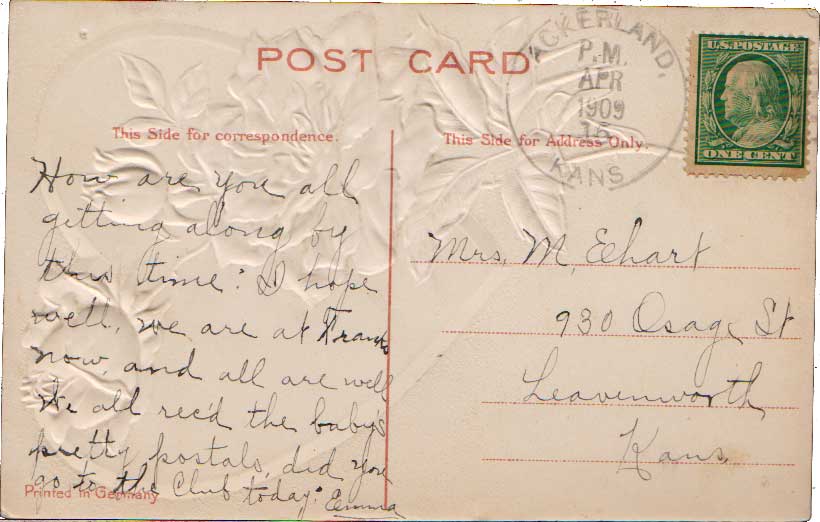 POST CARD
This Side for correspondence.
This Side for Address Only.
ACKERLAND,
P.M.
APR
1909
KANS
U.S. POSTAGE
ONE CENT
How are you all
getting along by
this time? I hope
well, we are at Franks
now, and all are well
We all rec'd the baby's
pretty postals, did you
go to the Club today? Emma
Printed in Germany
Mrs. M. Eehart
930 Osage St
Leavenworth
Kans.